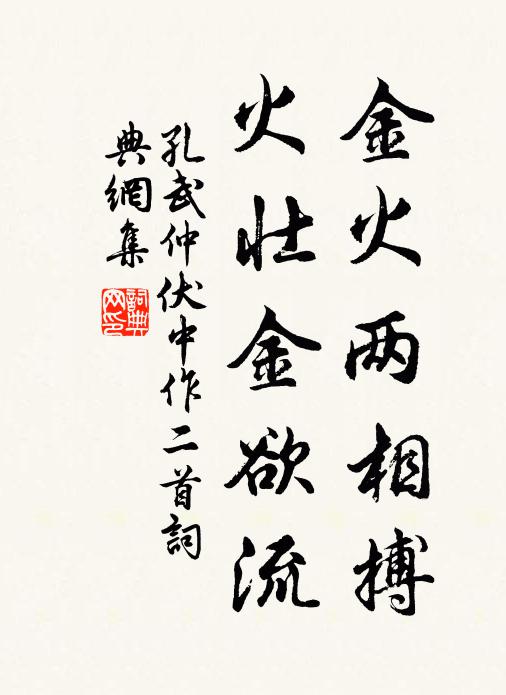 金火两相搏
火壮金欲流
孔武仲伏中作二首詞
典網集
詞典網印